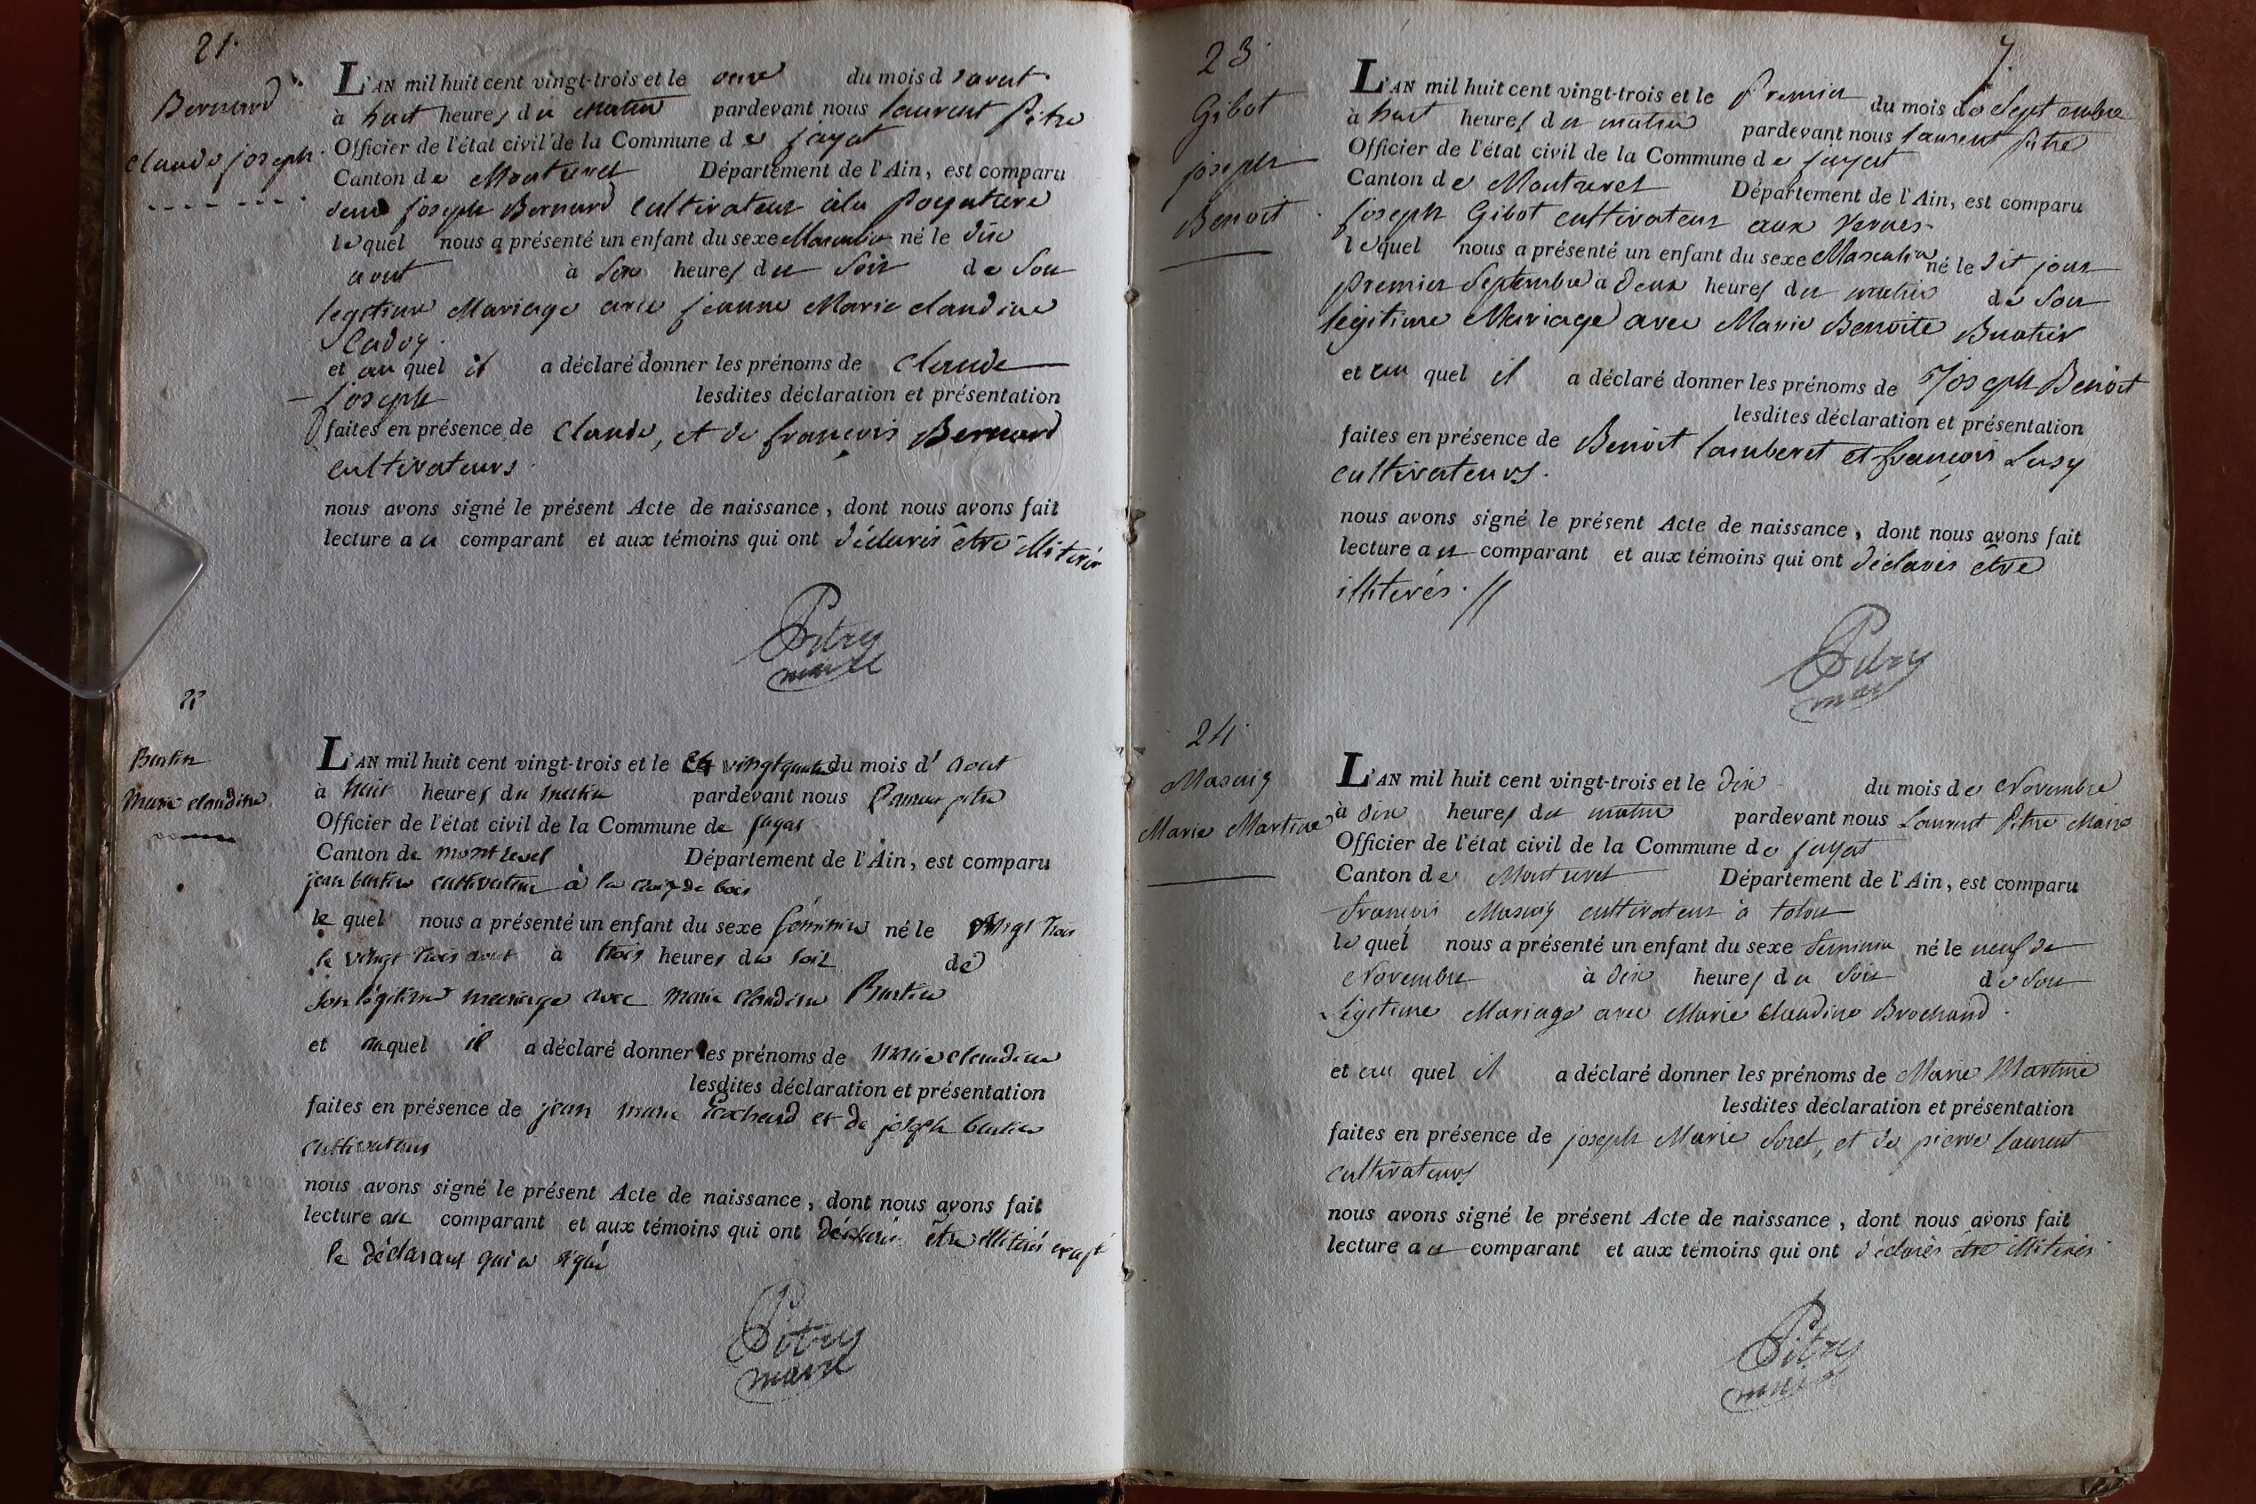 21.
Bernard
claude joseph.
L'AN mil huit cent vingt-trois et le onze du mois d'aout
à huit heures du matin pardevant nous laurent Pitre
Officier de l'état civil de la Commune de jayat
Canton de Montrevel Département de l'Ain, est comparu
joseph Bernard cultivateur à la Poyatiere
lequel nous a présenté un enfant du sexe Masculin né le dix
aout à heures du soir de son
legitime Mariage avec jeanne Marie claudine
Cadoy.
et au quel il a déclaré donner les prénoms de claude
joseph lesdites déclaration et présentation
faites en présence de claude, et de françois Bernard
cultivateurs.
nous avons signé le présent Acte de naissance, dont nous avons fait
lecture au comparant et aux témoins qui ont déclarés être illiterés
Pitre
maire
22
Burtin
marie claudine
L'AN mil huit cent vingt-trois et le 24 vingt quatre du mois d'aout
à huit heures du matin pardevant nous laurent pitre
Officier de l'état civil de la Commune de jayat
Canton de montrevel Département de l'Ain, est comparu
jean burtin cultivateur à la croix de bois
le quel nous a présenté un enfant du sexe féminin né le vingt trois
le vingt trois aout à trois heures du soir de
son légitime mariage avec marie claudine Burtin
et auquel il a déclaré donner les prénoms de marie claudine
lesdites déclaration et présentation
faites en présence de jean marie et de joseph burtin
cultivateurs
nous avons signé le présent Acte de naissance, dont nous avons fait
lecture au comparant et aux témoins qui ont déclaré être illitérés excepté
le déclarant qui a signé
Pitre
maire
7.
23.
Gibot
joseph
Benoit.
L'AN mil huit cent vingt-trois et le Premier du mois de Septembre
à huit heures du matin pardevant nous laurent Pitre
Officier de l'état civil de la Commune de jayat
Canton de Montrevel Département de l'Ain, est comparu
joseph Gibot cultivateur aux Vernes
lequel nous a présenté un enfant du sexe Masculin né le dit jour
premier Septembre à deux heures du matin de son
légitime Mariage avec Marie Benoite Buatier
et au quel il a déclaré donner les prénoms de Joseph Benoit
lesdites déclaration et présentation
faites en présence de Benoit lamberet et françois Lusy
cultivateurs.
nous avons signé le présent Acte de naissance, dont nous avons fait
lecture au comparant et aux témoins qui ont déclarés être
illiterés. //
Pitre
maire
24.
Masuiy
Marie Martine
L'AN mil huit cent vingt-trois et le dix du mois de Novembre
à dix heures du matin pardevant nous Laurent Pitre Maire
Officier de l'état civil de la Commune de jayat
Canton de Montrevel Département de l'Ain, est comparu
françois Masuiy cultivateur à tolou
le quel nous a présenté un enfant du sexe feminin né le neuf de
Novembre à dix heures du soir de son
légitime Mariage avec Marie Claudine Brochand.
et au quel il a déclaré donner les prénoms de Marie Martine
lesdites déclaration et présentation
faites en présence de joseph Marie Sorel, et de pierre laurent
cultivateurs
nous avons signé le présent Acte de naissance, dont nous avons fait
lecture au comparant et aux témoins qui ont déclarés être illiterés.
Pitre
maire